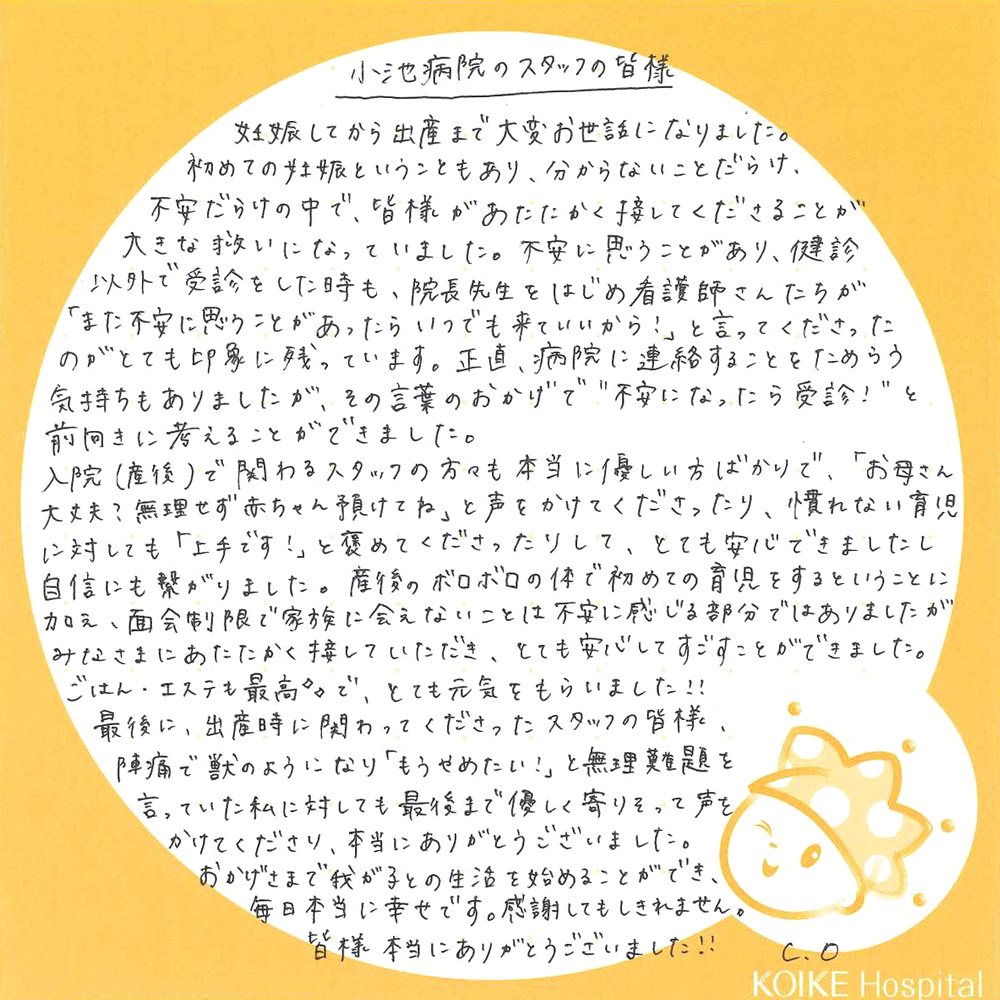 小池病院のスタッフの皆様
妊娠してから出産まで大変お世話になりました。
初めての妊娠ということもあり、分からないことだらけ、
不安だらけの中で、皆様があたたかく接してくださることが
大きな救いになっていました。不安に思うことがあり、健診
以外で受診をした時も、院長先生をはじめ看護師さんたちが
「また不安に思うことがあったらいつでも来ていいから!」と言ってくださった
のがとても印象に残っています。正直、病院に連絡することをためらう
気持ちもありましたが、その言葉のおかげで"不安になったら受診!"と
前向きに考えることができました。
入院(産後)で関わるスタッフの方々も本当に優しい方ばかりで、「お母さん
大丈夫?無理せず赤ちゃん預けてね」と声をかけてくださったり、慣れない育児
に対しても「上手です!」と褒めてくださったりして、とても安心できましたし
自信にも繋がりました。産後のボロボロの体で初めての育児をするということに
加え、面会制限で家族に会えないことは不安に感じる部分ではありましたが
みなさまにあたたかく接していただき、とても安心してすごすことができました。
ごはん・エステも最高で、とても元気をもらいました!!
最後に、出産時に関わってくださったスタッフの皆様、
陣痛で獣のようになり「もうやめたい!」と無理難題を
言っていた私に対しても最後まで優しく寄りそって声を
かけてくださり、本当にありがとうございました。
おかげさまで我が子との生活を始めることができ、
毎日本当に幸せです。感謝してもしきれません。
皆様本当にありがとうございました!!
C.O
KOIKE Hospital